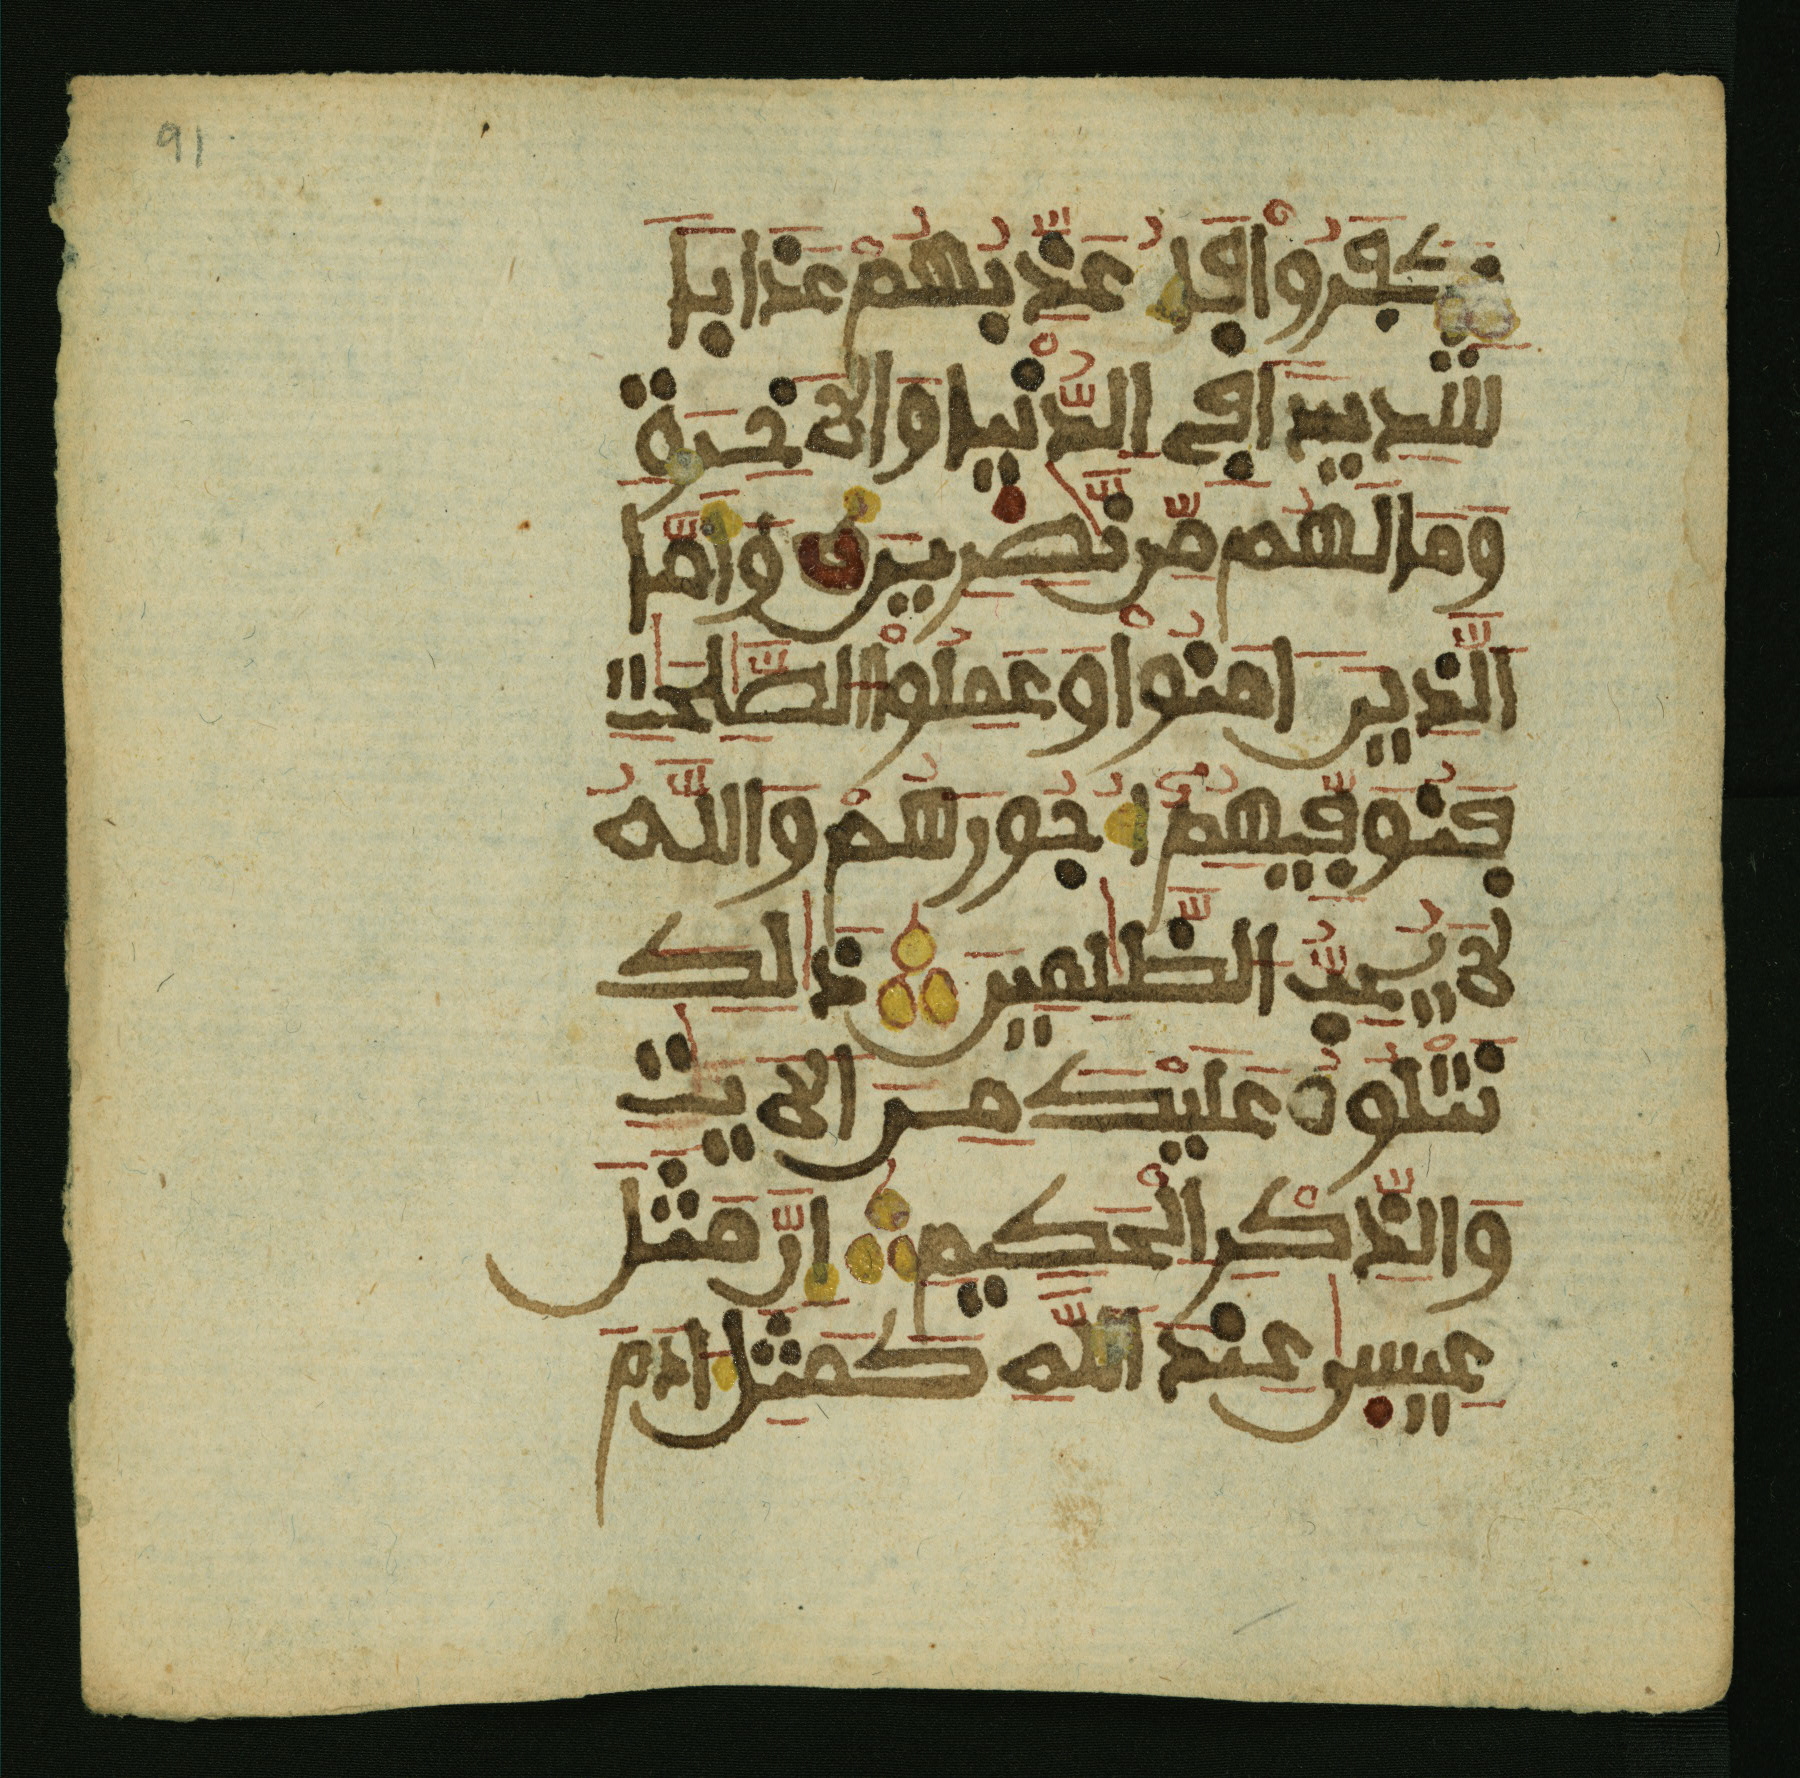 91
كَفَرُواْ فَأُعَذِّبُهُمْ عَذَابًا
شَدِيدًا فِي الدُّنْيَا وَالاَخِرَةِ
وَمَا لَهُم مِّن نَّٰصِرِينَ وَأَمَّا
الَّذِينَ ءَامَنُواْ وَعَمِلُواْ الصَّٰلِحَٰتِ
فَنُوَفِّيهِمُ أُجُورَهُمْ وَاللَّهُ
لَا يُحِبُّ الظَّٰلِمِينَ ذَٰلِكَ
نَتْلُوهُ عَلَيْكَ مِنَ الاَيَٰتِ
وَالذِّكْرِ الْحَكِيمِ إِنَّ مَثَلَ
عِيسَىٰ عِندَ اللَّهِ كَمَثَلِ ءَادَمَ